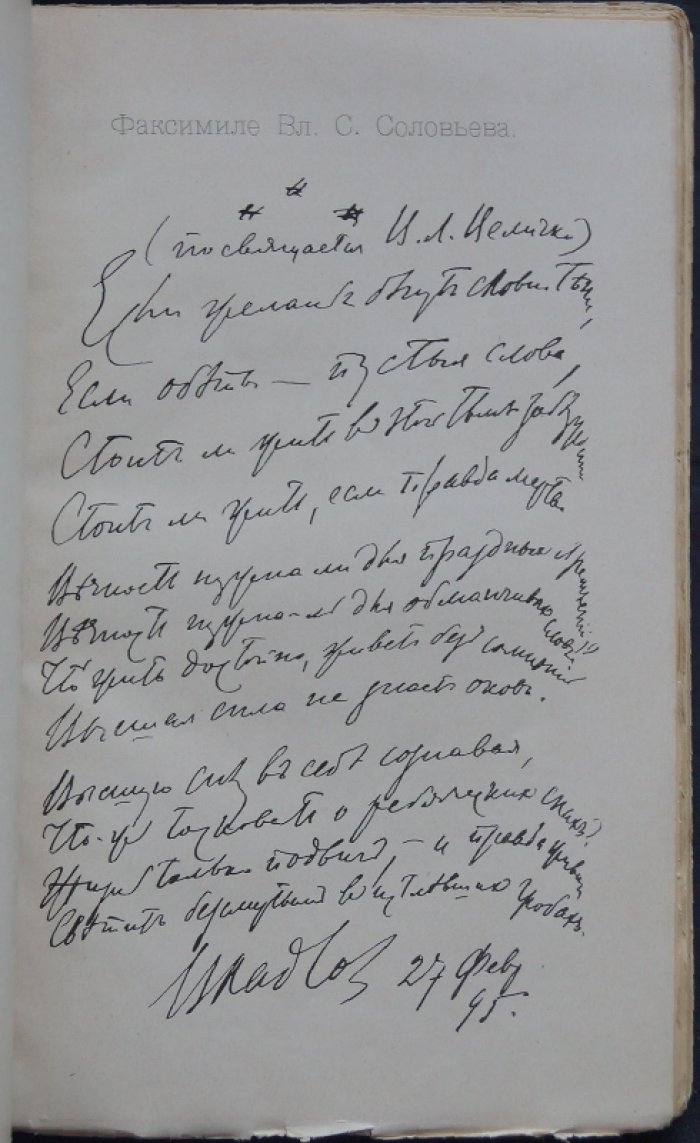 Факсимиле Вл. С. Соловьева.
(посвящается
Если желанья бѣгутъ словно тѣни,
Если обѣты — пустыя слова,
Стоитъ ли жить въ этой тьмѣ заблужденій
Стоитъ ли жить, если правда мертва
Вѣчность нужна ли для праздныхъ стремленій?
Вѣчность нужна-ль для обманчивыхъ словъ?
Что жить достойно, живетъ безъ сомнѣній
Высшая сила не знаетъ оковъ.
Высшую силу въ себѣ сознавая,
Что-жъ толковать о ребяческихъ снахъ?
Жизнь только подвигъ, — и правда живая
Свѣтитъ безсмертьемъ въ истлѣвшихъ гробахъ.
Влад Сол 27 Февр
95.